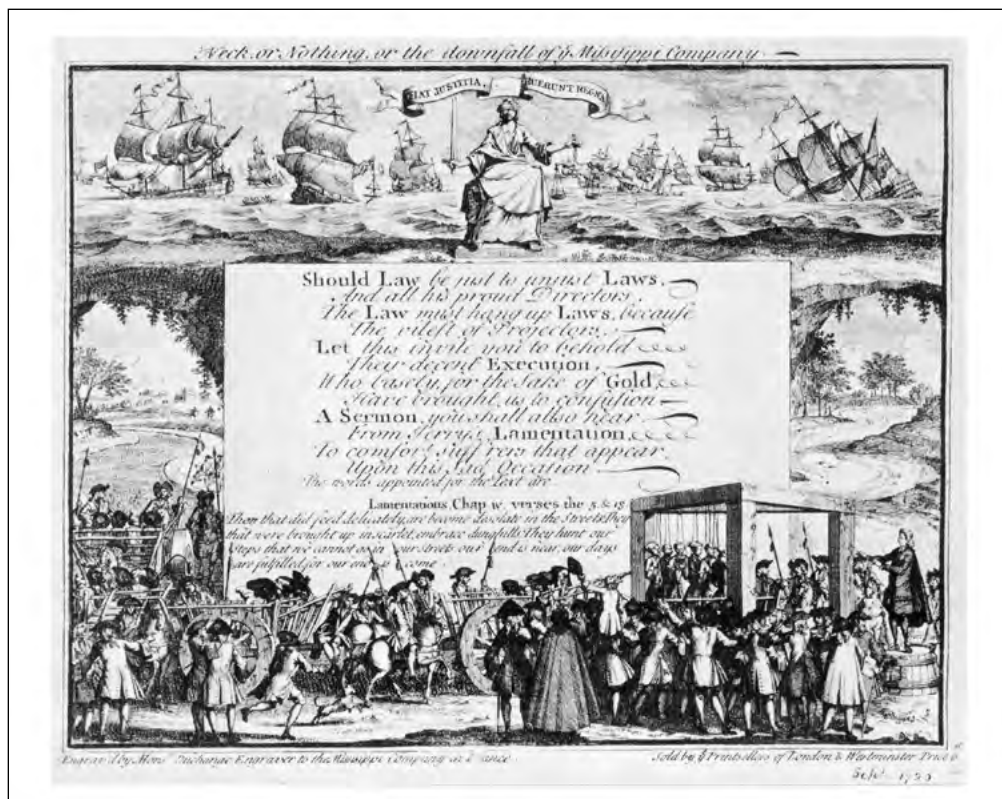 Neck or Nothing, or the downfall of ẏ Missisippi Company
FIAT JUSTITIA, RUERUNT REGNA
Should Law be just to unjust Laws,
And all his proud Directors,
The Law must hang up Laws, because
The vilest of Projectors.
Let this invite you to behold
Their decent Execution,
Who basely, for the sake of Gold,
Have brought us to confusion
A Sermon, you shall also hear
From Jerrys Lamentation,
To comfort suff'rers that appear
Upon this sad Occation
The words appointed for the Text are
Lamentations, Chap iv. verses the 5. & 18
Thou that did feed delicately, are become desolate in the Streets, They
that were brought up in scarlet, embrace dunghills, They hunt our
steps that we cannot go in our streets our end is near, our days
are fulfilled, for our end is come
Engrav'd by Mons Engraver to the Missisippi Company in France
Sold by ẏ Printsellers of London & Westminster Price 6